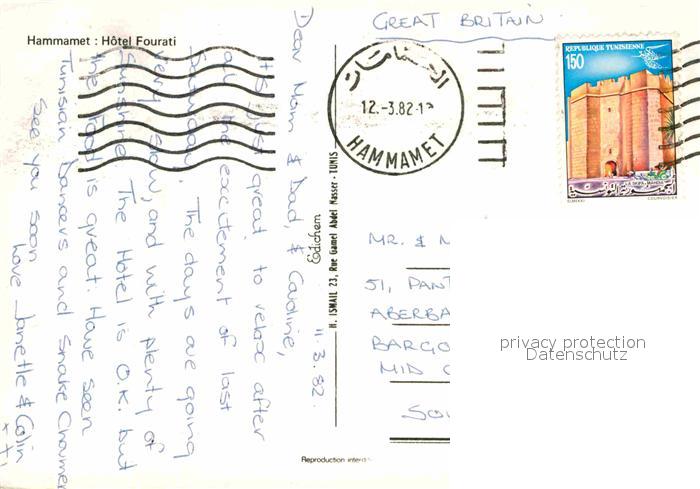 Hammamet : Hôtel Fourati
Dear Mom & Dad, & Caroline,
11.3.82.
It is just great to relax after
all the excitement of last
Saturday. The days are going
very slow, and with plenty of
sunshine. The Hotel is O.K. but
the food is great. Have seen
Tunisian Dancers and Snake Charmer
See you soon
love Janette & Colin
x x
Edichem
H. ISMAIL 23, Rue Gamel Abdel Nasser - TUNIS
Reproduction interd
GREAT BRITAIN
الحمامات
12.-3.82-1
HAMMAMET
REPUBLIQUE TUNISIENNE
150
الجمهورية التونسية
EL MEKKI
COURVOISIER
MR. & M
51, PANT
ABERBA
BARGO
MID G
SOU
privacy protection
Datenschutz